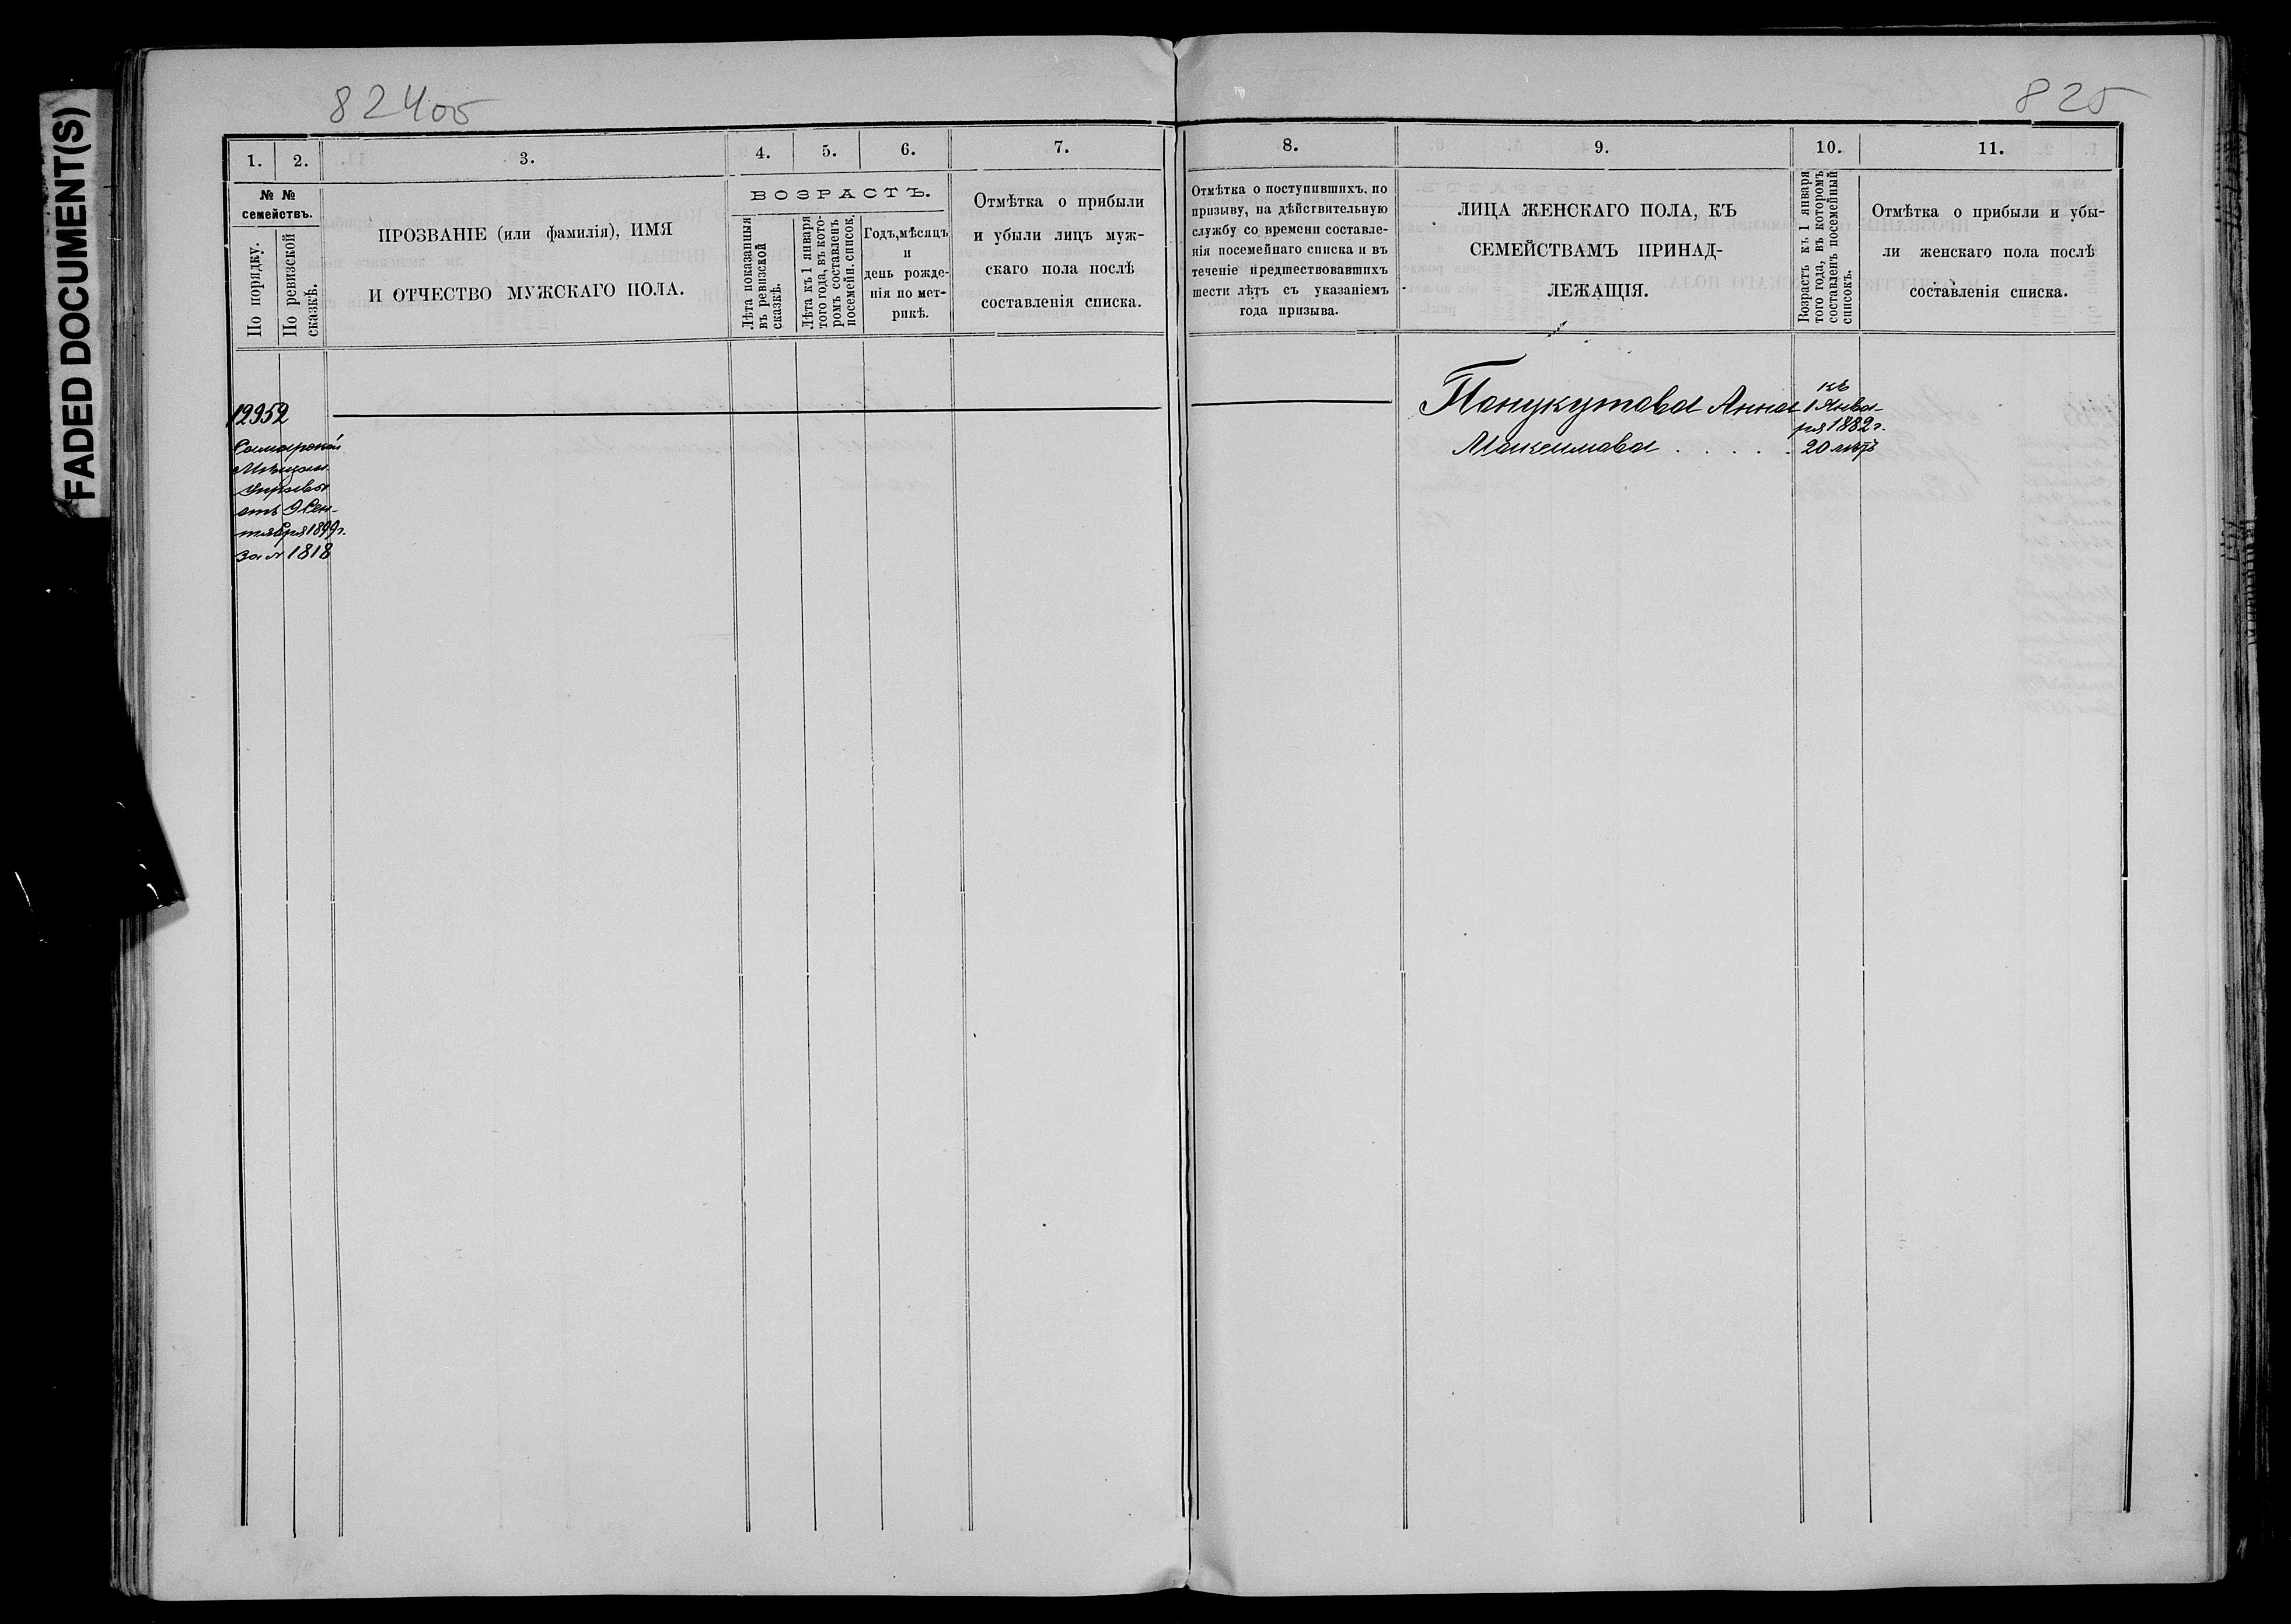 FADED DOCUMENT(S)
824об
825
1.
2.
3.
4.
5.
6.
7.
№ №
семействъ.
По порядку.
По ревизской
сказкѣ.
ПРОЗВАНІЕ (или фамилія), ИМЯ
И ОТЧЕСТВО МУЖСКАГО ПОЛА.
ВОЗРАСТЪ.
Лѣта показанныя
въ ревизской
сказкѣ.
Лѣта къ 1 января
того года, въ кото-
ромъ составленъ
посемейн. список.
Годъ, мѣсяцъ
и
день рожде-
нія по мет-
рикѣ.
Отмѣтка о прибыли
и убыли лицъ муж-
скаго пола послѣ
составленія списка.
12952
Самарской
Мѣщан.
Управы
отъ 9 Сен-
тября 1899 г.
за № 1818
8.
9.
10.
11.
Отмѣтка о поступившихъ, по
призыву, на дѣйствительную
службу со времени составле-
нія посемейнаго списка и въ
теченіе предшествовавшихъ
шести лѣтъ съ указаніемъ
года призыва.
ЛИЦА ЖЕНСКАГО ПОЛА, КЪ
СЕМЕЙСТВАМЪ ПРИНАД-
ЛЕЖАЩІЯ.
Возрастъ къ 1 января
того года, въ которомъ
составленъ посемейный
списокъ.
Отмѣтка о прибыли и убы-
ли женскаго пола послѣ
составленія списка.
Панукутова Анна
Максимова . . . . .
къ
1 Янва-
ря 1882 г.
20 лѣтъ